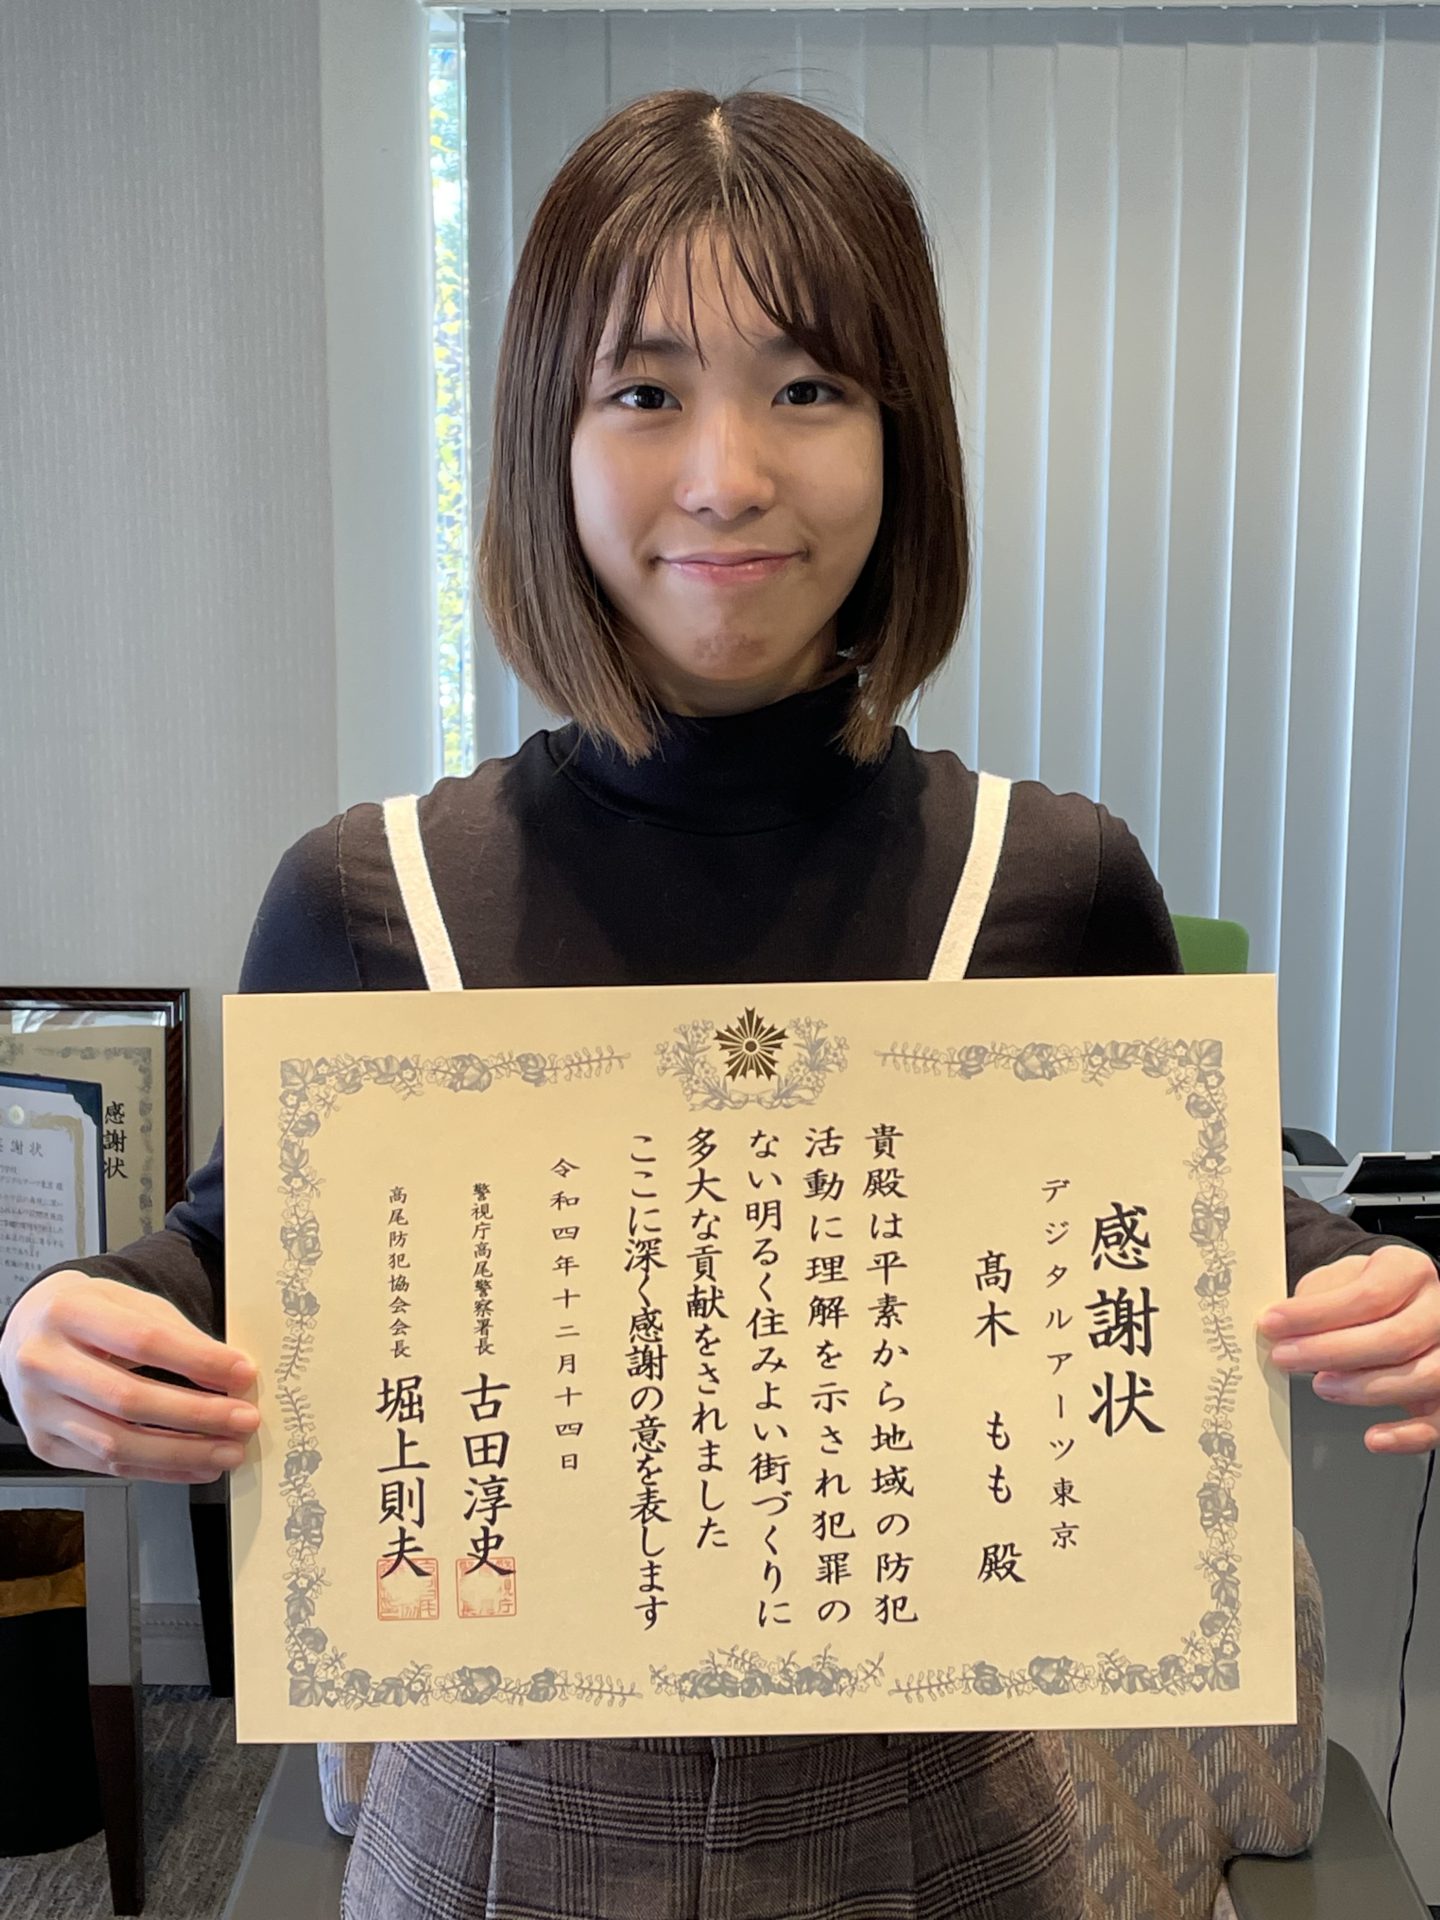 感謝状
デジタルアーツ東京
髙木 もも 殿
貴殿は平素から地域の防犯
活動に理解を示され犯罪の
ない明るく住みよい街づくりに
多大な貢献をされました
ここに深く感謝の意を表します
令和四年十二月十四日
警視庁高尾警察署長 古田淳史
高尾防犯協会会長 堀上則夫
感謝状
謝状